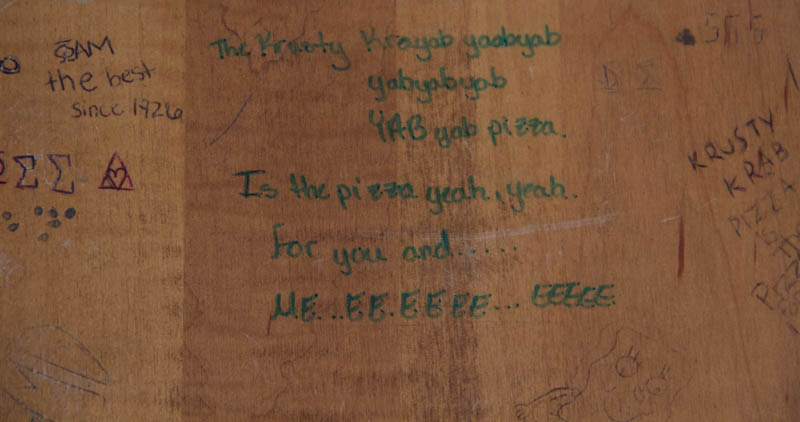 ΦΑΜ
the best
since 1926
ΣΣ
The Krusty Krayab yaabyab
yabyabyab
YAB yab pizza.
Is the pizza yeah, yeah.
for you and......
ME...EE.EEEEE... EEEEE
ΣΓΣ
Σ
KRUSTY
KRAB
PIZZA
IS